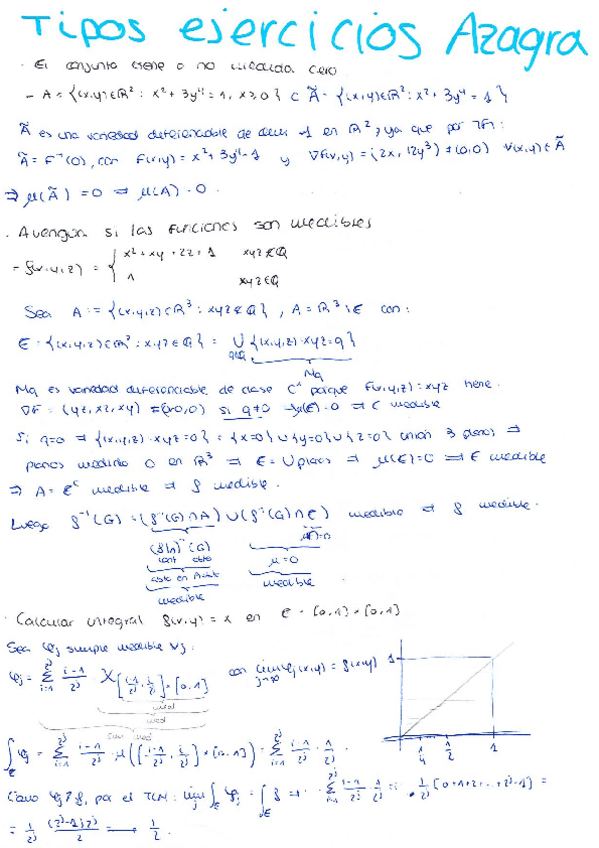 Tipos ejercicios Azagra
· El conjunto tiene o no medida cero
- A = {(x,y)∈R² : x² + 3y⁴ = 1, x≥0} ⊂ Ã = {(x,y)∈R² : x² + 3y⁴ = 1}
à es una variedad diferenciable de dim 1 en R², ya que por TFI:
à = F⁻¹(0), con F(x,y) = x² + 3y⁴ - 1 y ∇F(x,y) = (2x, 12y³) ≠ (0,0) ∀(x,y)∈Ã
⇒ μ(Ã) = 0 ⇒ μ(A) = 0.
· Averigua si las funciones son medibles
- f(x,y,z) = { x² + xy + 2z + 1 xyz∉Q
1 xyz∈Q
Sea A := {(x,y,z)∈R³ : xyz∉Q}, A = R³\E con:
E = {(x,y,z)∈R³ : xyz∈Q} = ∪ {(x,y,z): xyz=q}
q∈Q
Mq
Mq es variedad diferenciable de clase C¹ porque F(x,y,z) = xyz tiene
∇F = (yz, xz, xy) ≠ (0,0,0) si q≠0 ⇒ μ(E) = 0 ⇒ E medible
Si q=0 ⇒ {(x,y,z): xyz=0} = {x=0}∪{y=0}∪{z=0} unión 3 planos ⇒
planos medida 0 en R³ ⇒ E = ∪ planos ⇒ μ(E)=0 ⇒ E medible
⇒ A = Eᶜ medible ⇒ f medible.
Luego f⁻¹(G) = (f⁻¹(G)∩A) ∪ (f⁻¹(G)∩E) medible ⇒ f medible.
(f|A)⁻¹(G) μ=0
cont abto
abto en A
medible medible
· Calcular integral f(x,y) = x en E = [0,1]×[0,1]
Sea φj simple medible ∀j:
φj = Σ (i-1)/2ʲ · χ[(i-1)/2ʲ, i/2ʲ]×[0,1] con lim φj(x,y) = f(x,y)
j→∞
med
med
1
1/4 1/2 1
∫E φj = Σ (i-1)/2ʲ · μ([(i-1)/2ʲ, i/2ʲ]×[0,1]) = Σ (i-1)/2ʲ · 1/2ʲ.
Como φj↑f, por el TCM: lim ∫E φj = ∫E f
= (2ʲ-1)2ʲ/2 → 1/2.